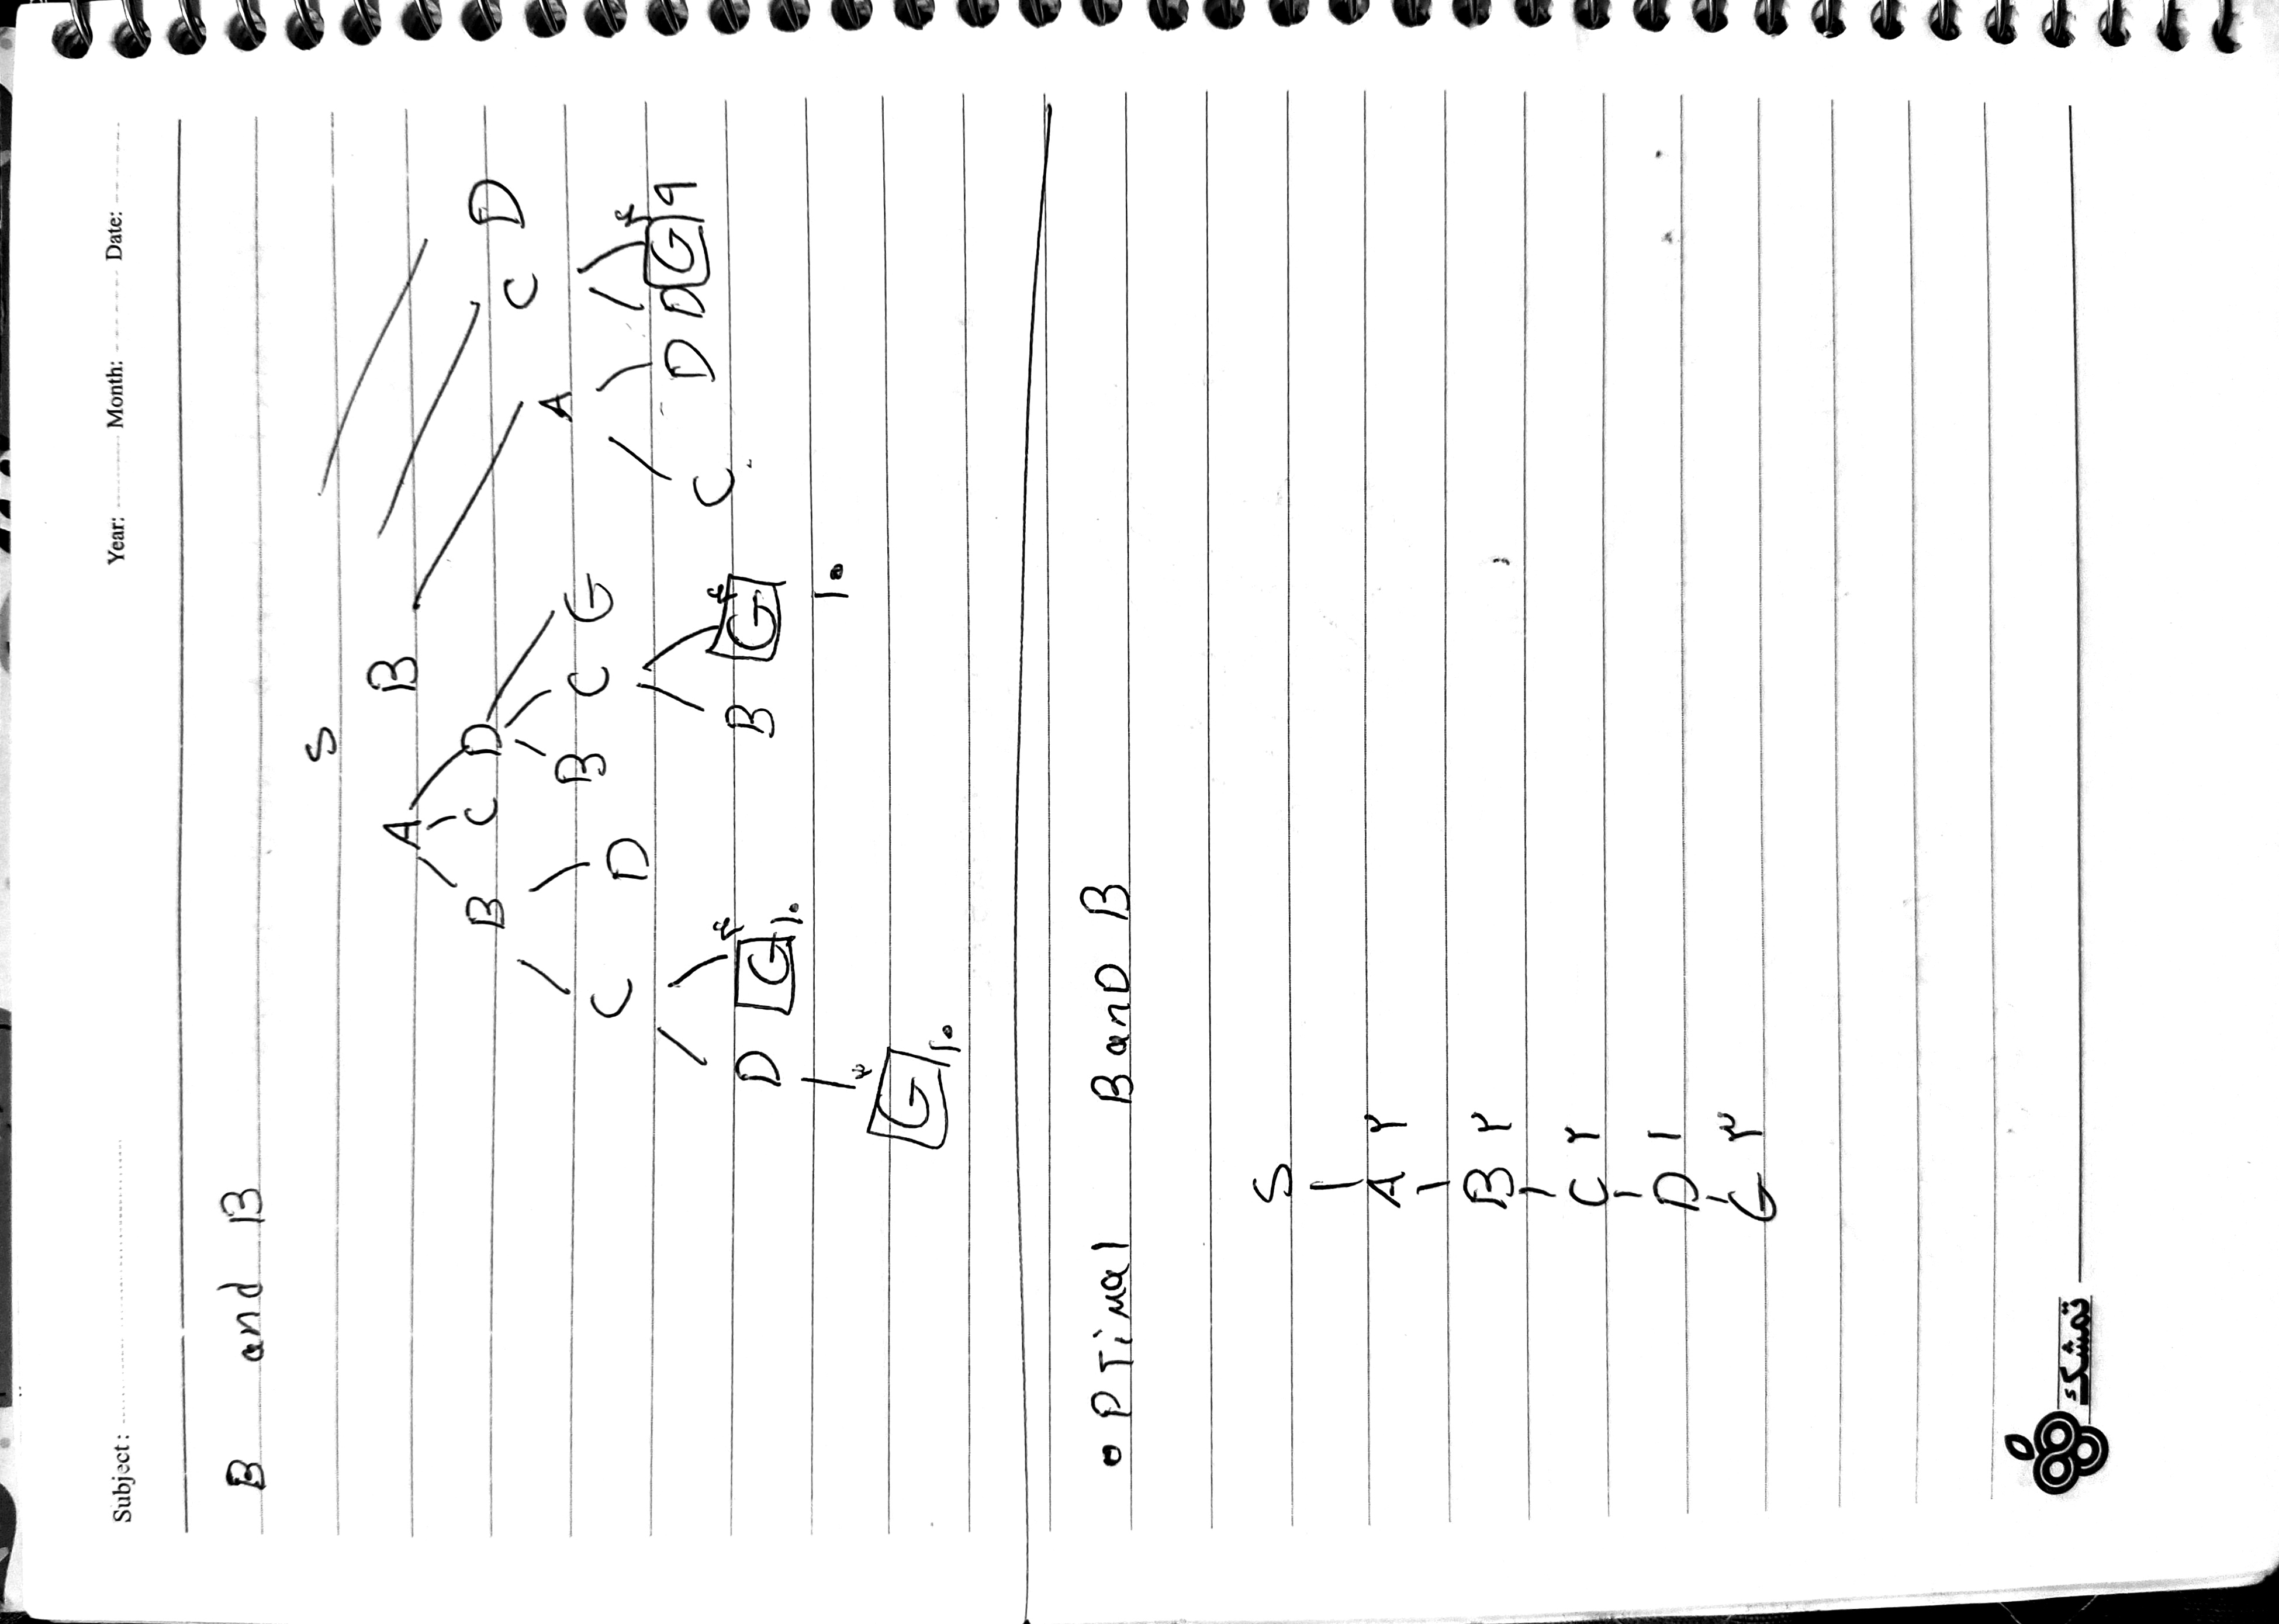 Subject: Year: Month: Date:
B and B
S
A B
B C D C D
B C G A
C D
D G ۴ ۹
C D
D G ۴ ۱۰ B G ۴
۱۰
G ۳ ۱۰
OPTimal BanD B
S
A ۲
B ۲
C ۲
D ۱
G ۳
تمشک